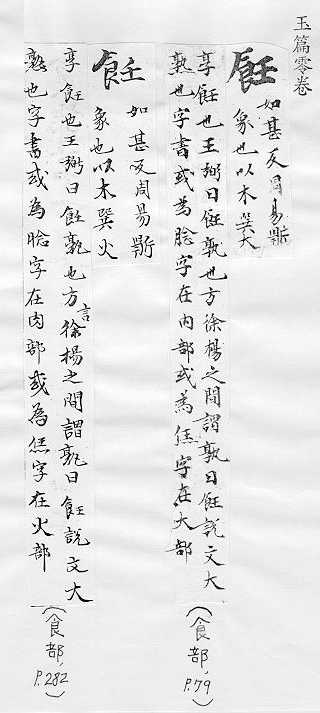 玉篇零卷
飪
如甚反周易鼎
象也以木巽大
享飪也王弼曰飪孰也方徐楊之間謂孰曰飪說文大
熟也字書或為腍字在内部或為恁字在大部
(食部, P.79)
飪
如甚反周易鼎
象也以木巽火
享飪也王弼曰飪孰也方言徐楊之間謂孰曰飪說文大
熟也字書或為腍字在肉部或為恁字在火部
(食部, P.282)